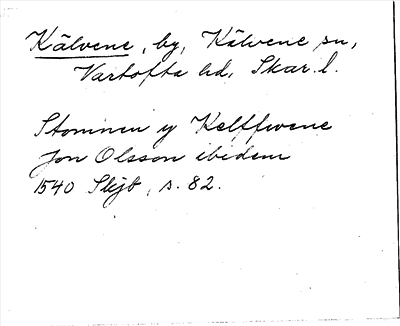 Kälvene, by, Kälvene sn,
Vartofta hd, Skar. l.
Stommen y Kelffwene
Jon Olsson ibidem
1540 Skjb, s. 82.